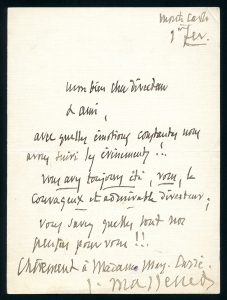 Monte Carlo
1er Fev.
mon bien cher directeur
& ami,
avec quelles émotions constantes nous
avons suivi les évènements !!
vous avez toujours été, vous, le
courageux et admirable directeur ;
vous savez quelles sont nos
pensées pour vous !!!
à Madame
J. Massenet